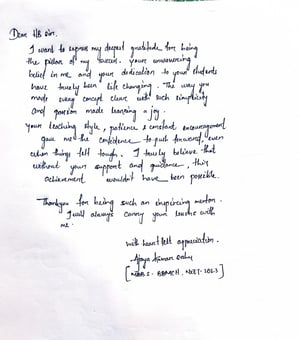 Dear HB Sir.
I want to express my deepest gratitude for being
the pillar of my success. your unwavering
belief in me and your dedication to your students
have truely been life changing. The way you
made every concept clear with such simplicity
and passion made learning a joy.
your teaching style, patience & constant encouragement
gave me the confidence to push forward, even
when things felt tough. I truely believe that
without your support and guidance, this
achievement wouldn't have been possible.
Thankyou for being such an inspiring mentor.
I will always carry your lessons with
me.
with heartfelt appreciation.
Ajaya Kumar
[MBBS. BBMCH, NEET-2023]